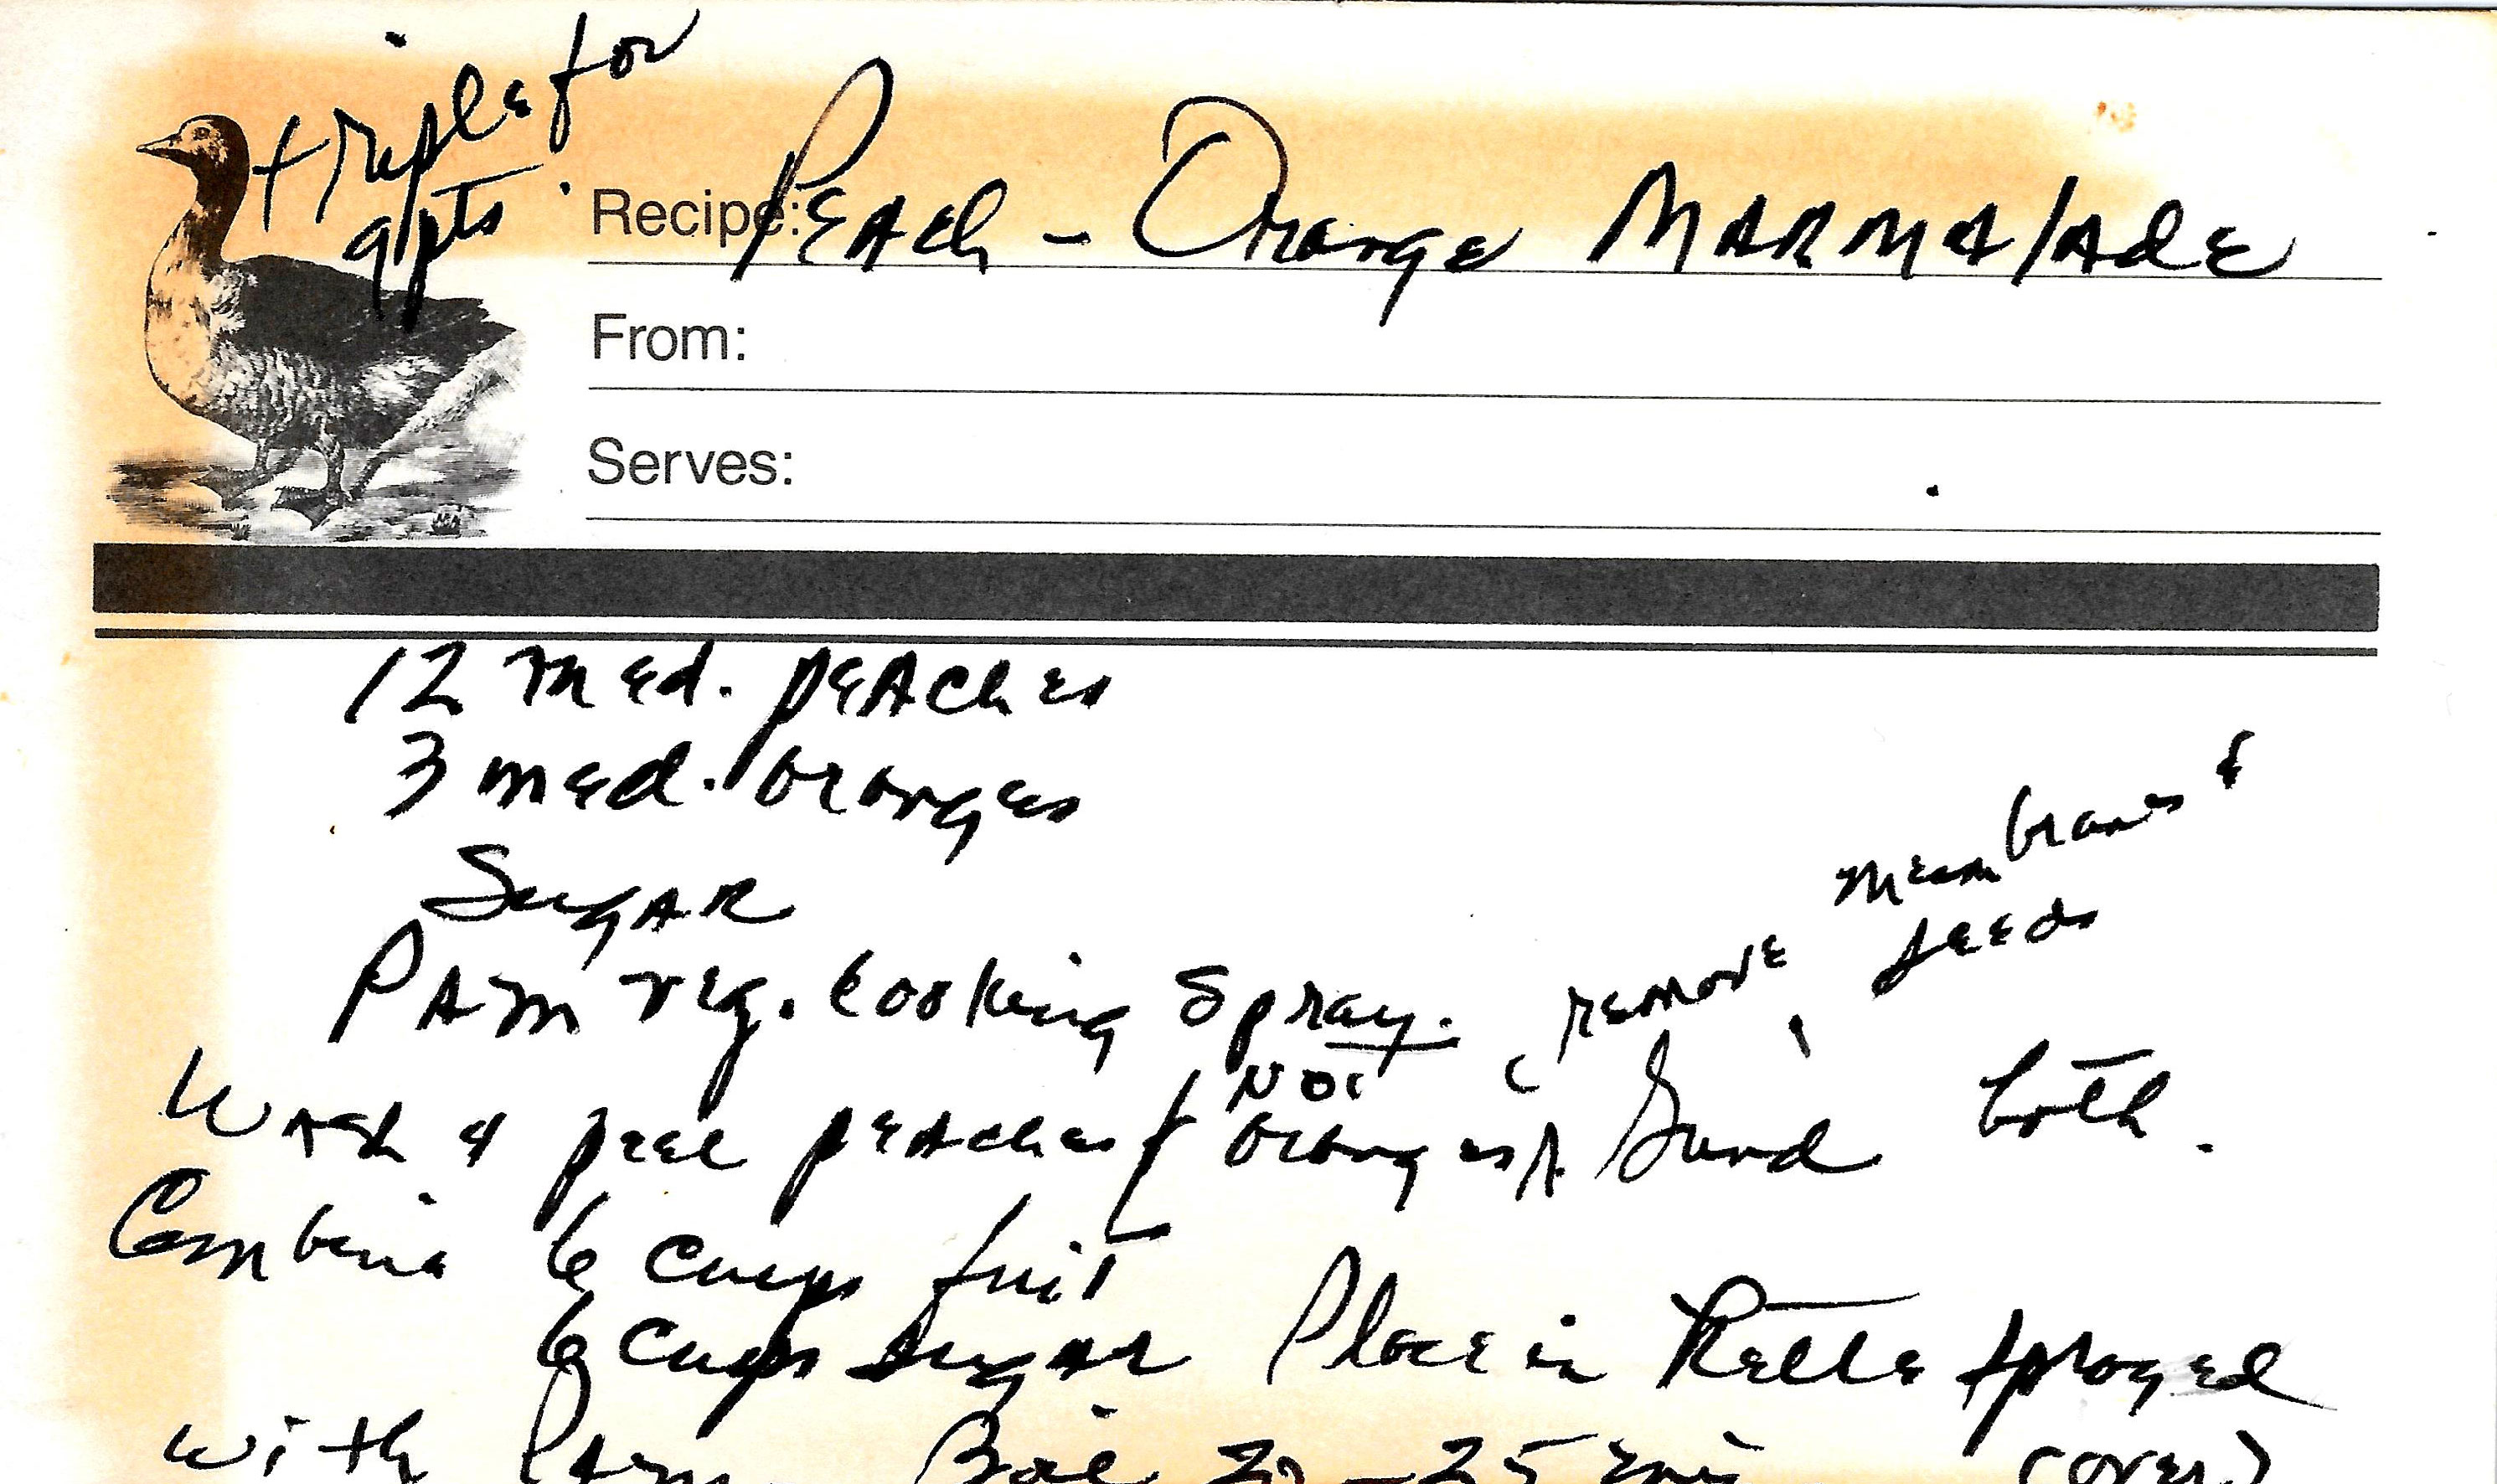 triple for
9 pts.
Recipe: Peach - Orange Marmalade
From:
Serves:
12 med. peaches
3 med. oranges
Sugar
PAM reg. cooking spray.
remove membranes &
seeds
Wash & peel peaches (not oranges) Grind both.
Combine 6 cups fruit
6 cups sugar Place in Kettle sprayed
with Pam. Boil 20-25 min (over)